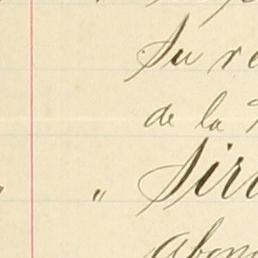 Su re
de la
" " Sir
abon